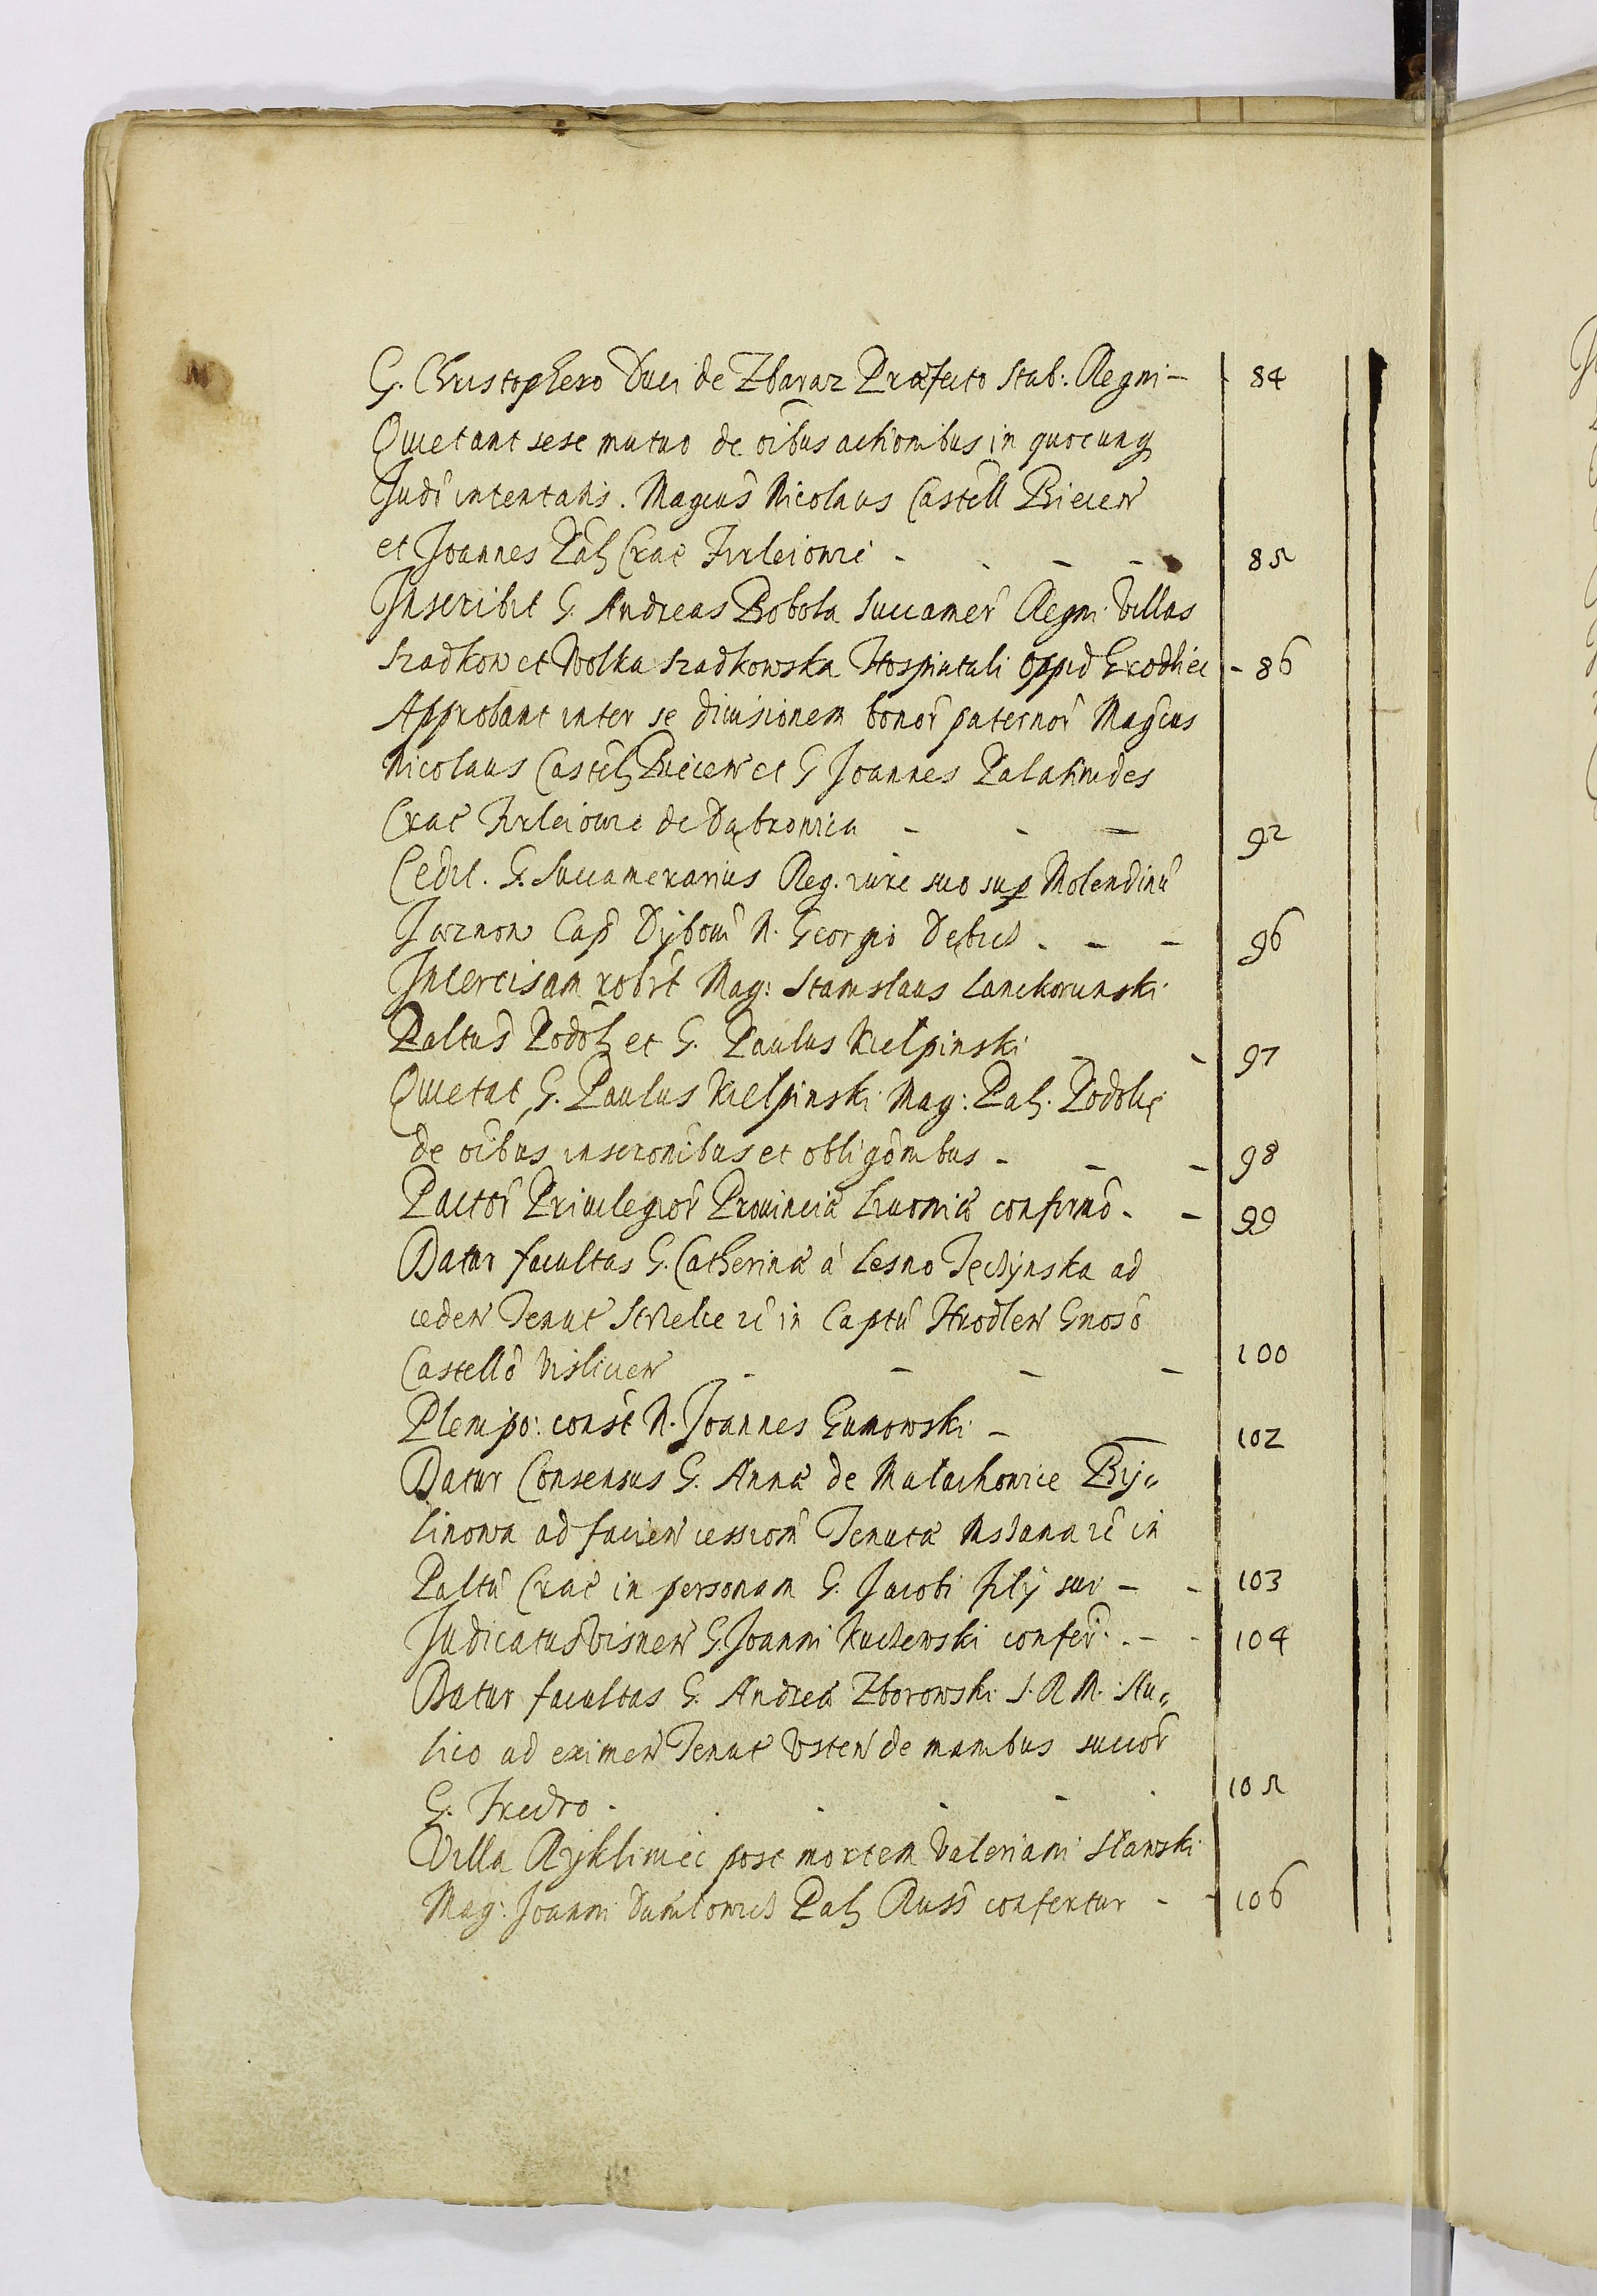 G. Christophero Duci de Zbaraz Præfecto Stab: Regni - 84
Quietant sese mutuo de oĩbus actionibus in quocunq
Judõ intentatis. Magcus Nicolaus Castell Biecen
et Joannes Pal Crac Firleiowie - - - - 85
Inscribit G. Andreas Bobola Succamer Regni Villas
Szadkow et Wolka Szadkowska Hospitali Oppid Grodziec - 86
Approbant inter se diuisionem bonor paternor Magcus
Nicolaus Castel Biecen et G Joannes Palatinides
Crac Firleiowie de Dąbrowica - - - 92
Cedit. G. Succamerarius Reg. iure suo sup Molendinũ
Jwznow Cap Dybow N. Georgio Dębicz - - - 96
Intercisam robrt Mag: Stanislaus Lanckorunski
Paltus Podol et G. Paulus Kielpinski - - 97
Quietat G. Paulus Kielpinski Mag: Pal. Podolię
de oĩbus inscronibus et obligõnibus - - - 98
Pactor Priuilegior Prouinciæ Liuoniæ confirmõ - - 99
Datur facultas G. Catherinæ à Lesno Tęczynska ad
ceden Tenut Strzelce rc in Captũ Hrodlen Gnoso
Castellõ Vislicen - - - - 100
Plenipo: const N. Joannes Gumowski - 102
Datur Consensus G. Annæ de Małachowice By„
linowa ad facien cessiom Tenutæ Mszana rc in
Paltũ Crac in personam G. Jacobi filij sui - - 103
Judicatus Visnen G. Joanni Kuczewski confer. - - 104
Datur facultas G. Andreæ Zborowski S. R M. Au„
lico ad eximen Tenut Vsten de manibus succor
G. Fredro - - - - - - 105
Villa Rykliniec post mortem Valeriani Sławski
Mag: Joanni Daniłowicz Pal Russ confertur - - 106